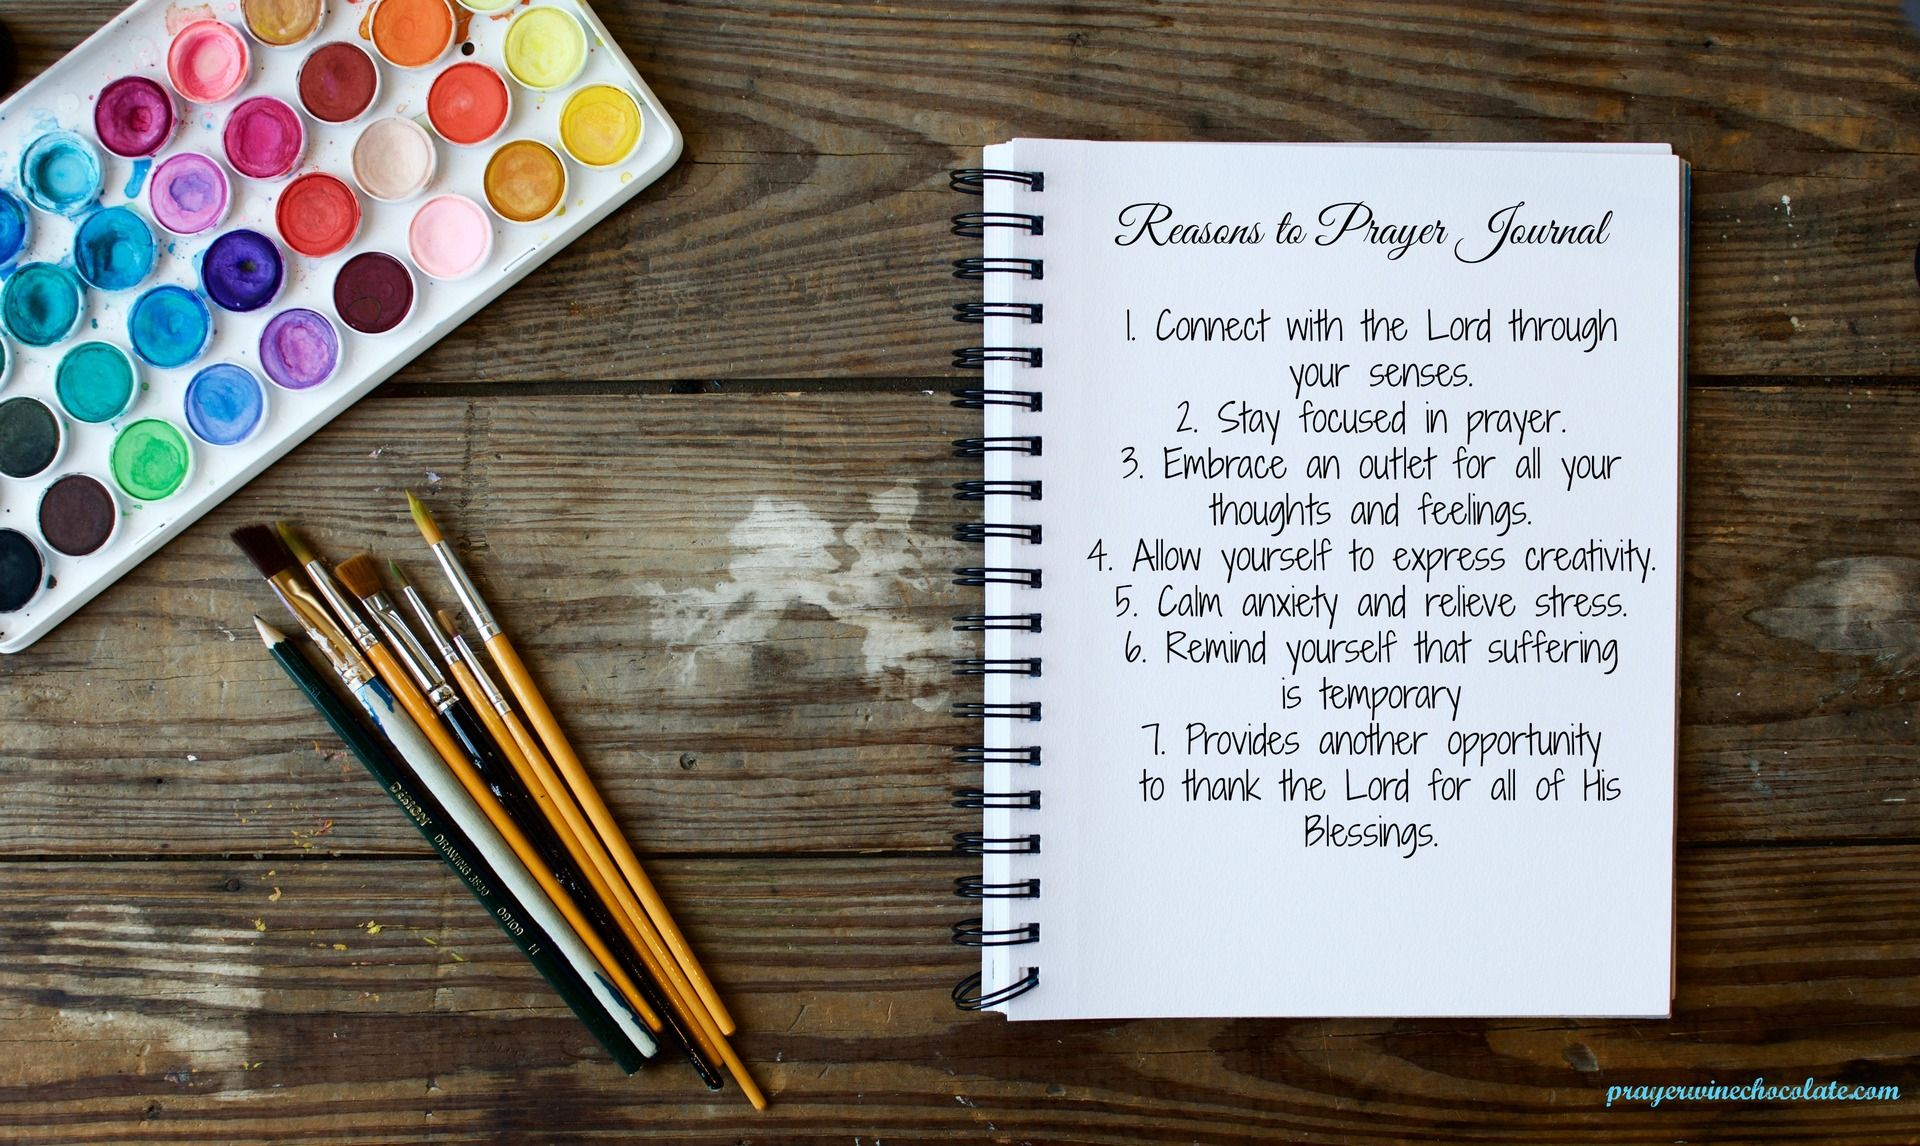 Reasons to Prayer Journal
1. Connect with the Lord through
your senses.
2. Stay focused in prayer.
3. Embrace an outlet for all your
thoughts and feelings.
4. Allow yourself to express creativity.
5. Calm anxiety and relieve stress.
6. Remind yourself that suffering
is temporary
7. Provides another opportunity
to thank the Lord for all of His
Blessings.
DESIGN DRAWING 3800 09109 H
prayerwinechocolate.com